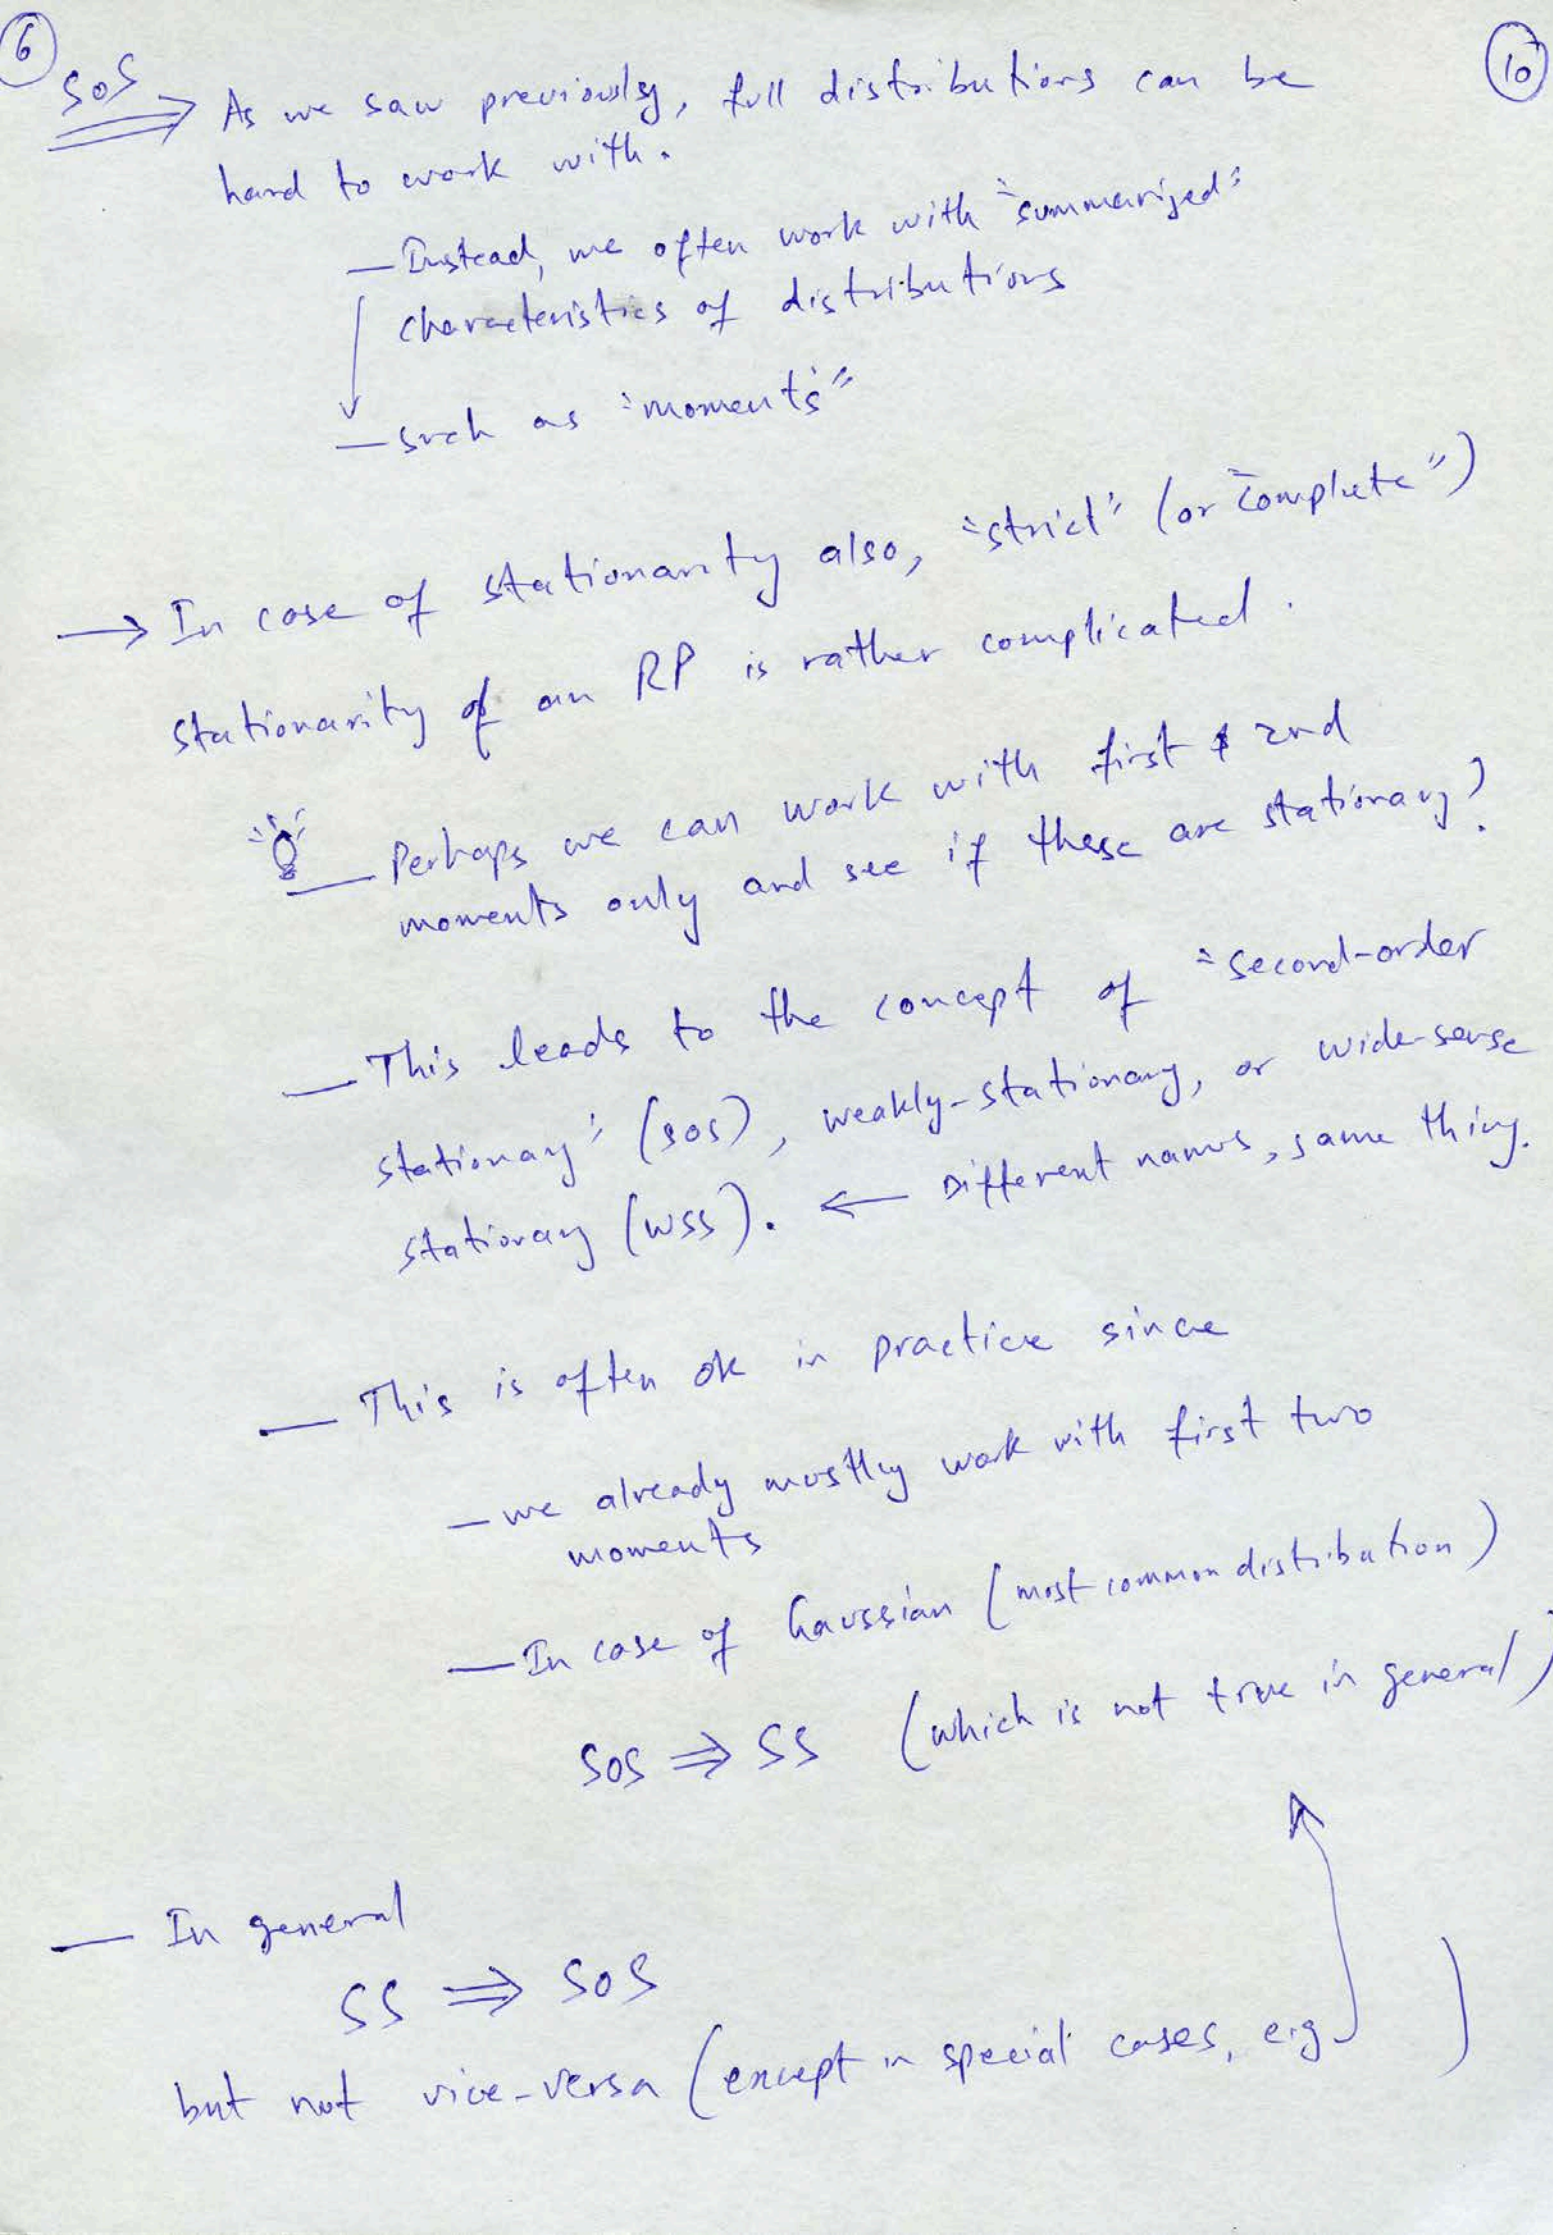 6
10
SOS ⇒ As we saw previously, full distributions can be
hard to work with.
— Instead, we often work with "summarized"
characteristics of distributions
— such as "moments"
→ In case of stationarity also, "strict" (or "complete")
stationarity of an RP is rather complicated.
— Perhaps we can work with first & 2nd
moments only and see if these are stationary?
— This leads to the concept of "second-order
stationary" (SOS), weakly-stationary, or wide-sense
stationary (WSS). ← Different names, same thing.
— This is often ok in practice since
— we already mostly work with first two
moments
— In case of Gaussian (most common distribution)
SOS ⇒ SS (which is not true in general)
— In general
SS ⇒ SOS
but not vice-versa (except in special cases, e.g. )